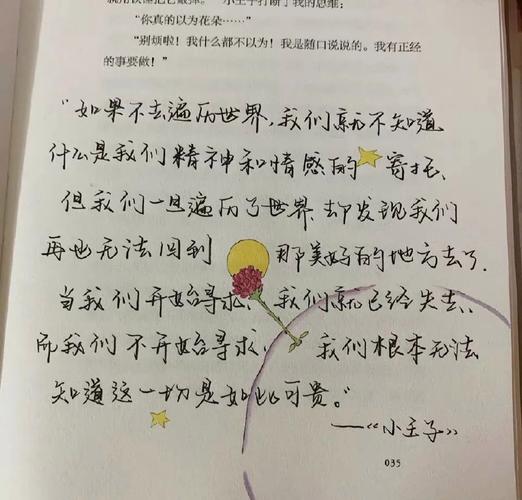 “你真的以为花朵……”
“别烦啦！我什么都不以为！我是随口说说的。我有正经
的事要做！”
“如果不去遍历世界，我们就不知道
什么是我们精神和情感的寄托、
但我们一旦遍历了世界、却发现我们
再也无法回到那美好的地方去了.
当我们开始寻求、我们就已经失去、
而我们不开始寻求、我们根本无法
知道这一切是如此可贵。”
——“小王子》
035